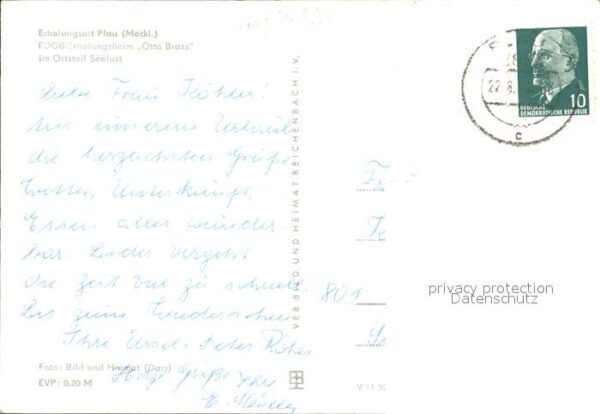 Erholungsort Plau (Meckl.)
FDGB-Erholungsheim „Otto Brass"
im Ortsteil Seelust
Liebe Frau Köhler!
Aus unserem Urlaub
die herzlichsten Grüße.
Wetter, Unterkunft,
Essen alles wunder-
bar. Leider vergeht
die Zeit viel zu schnell.
Bis zum Wiedersehen
Ihre
Herzl. Grüße Ihre
Foto: Bild und Heimat (Darr)
EVP: 0,20 M
VEB BILD UND HEIMAT REICHENBACH i. V.
V 11 50
801
22.8.
c
10
DEUTSCHE
DEMOKRATISCHE REPUBLIK
privacy protection
Datenschutz